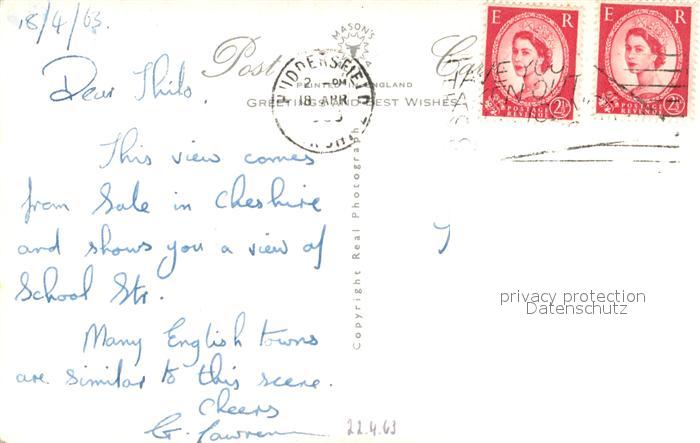 18/4/63.
MASON'S
Post Card
PRINTED IN ENGLAND
GREETINGS AND BEST WISHES
HUDDERSFIELD
2 - PM
18 APR
E R
POSTAGE
REVENUE
2½
E R
POSTAGE
REVENUE
2½
Dear Thilo,
This view comes
from Sale in Cheshire
and shows you a view of
School Str.
Many English towns
are similar to this scene.
Cheers
G.
22.4.63
Copyright Real Photograph
privacy protection
Datenschutz